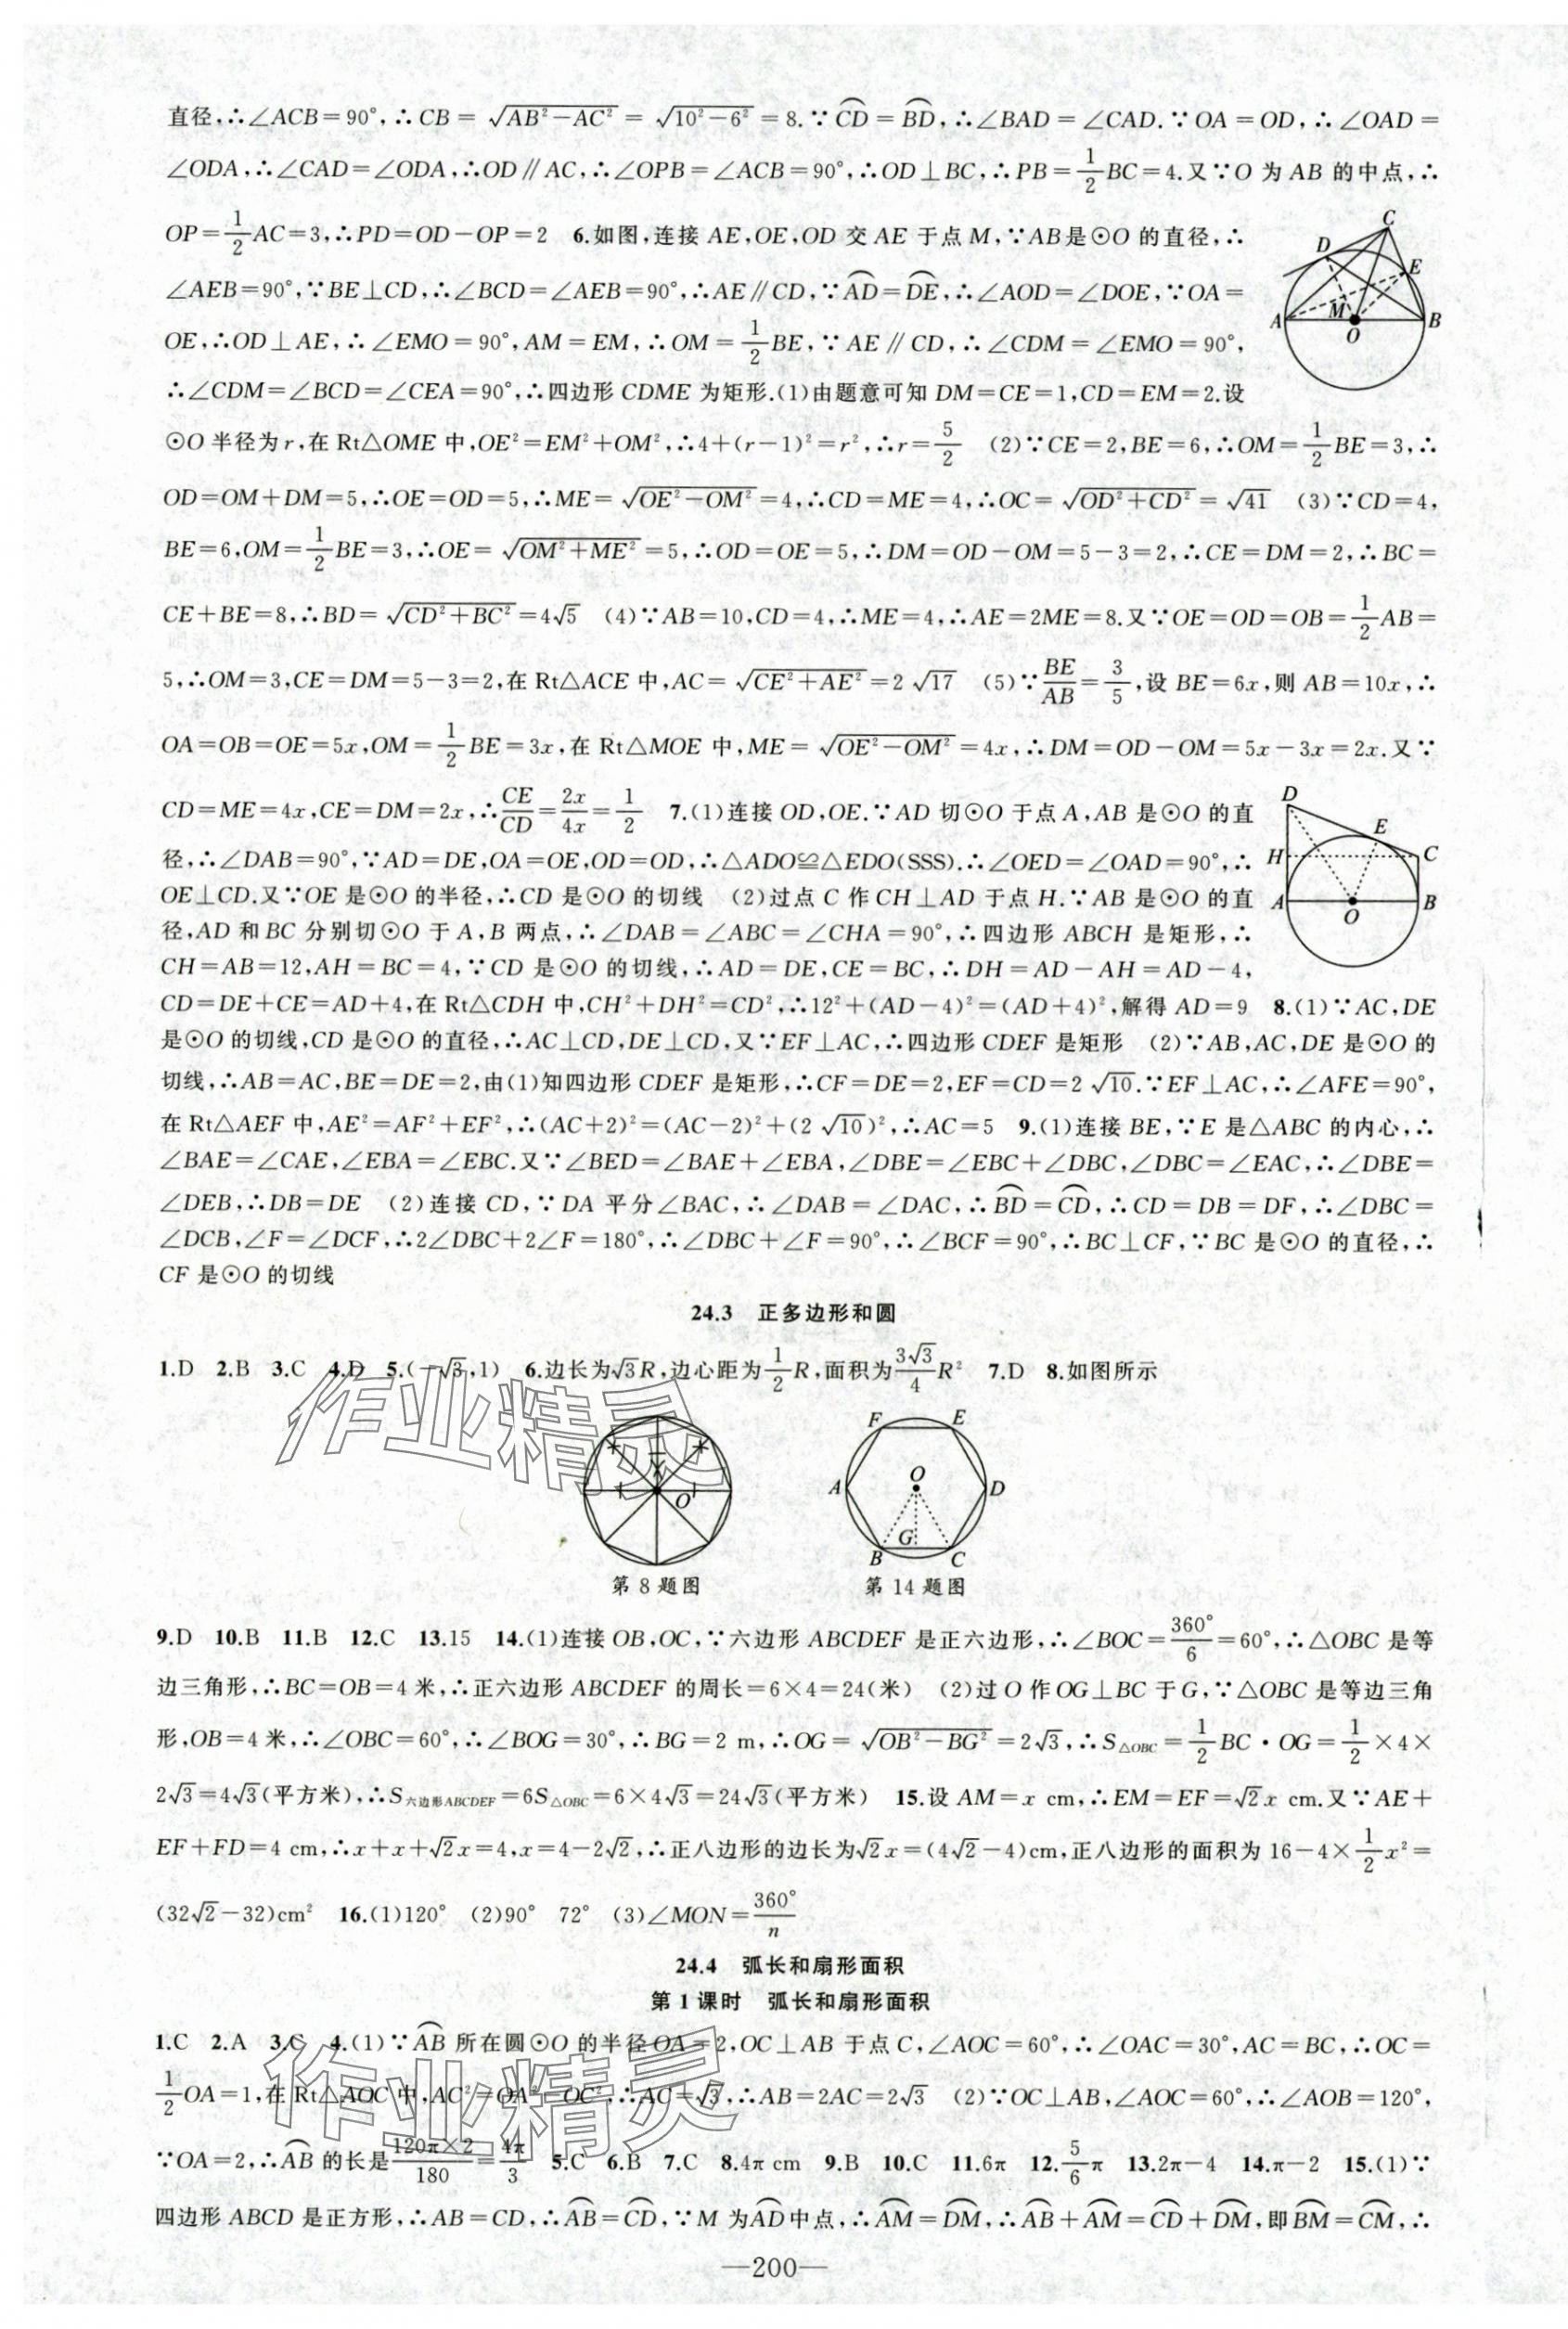 直径,∴∠ACB=90°,∴CB=√(AB²-AC²)=√(10²-6²)=8.∵⌒CD=⌒BD,∴∠BAD=∠CAD.∵OA=OD,∴∠OAD=
∠ODA,∴∠CAD=∠ODA,∴OD∥AC,∴∠OPB=∠ACB=90°,∴OD⊥BC,∴PB=1/2BC=4.又∵O为AB的中点,∴
OP=1/2AC=3,∴PD=OD-OP=2 6.如图,连接AE,OE,OD交AE于点M,∵AB是⊙O的直径,∴
∠AEB=90°,∵BE⊥CD,∴∠BCD=∠AEB=90°,∴AE∥CD,∵⌒AD=⌒DE,∴∠AOD=∠DOE,∵OA=
OE,∴OD⊥AE,∴∠EMO=90°,AM=EM,∴OM=1/2BE,∵AE∥CD,∴∠CDM=∠EMO=90°,
∴∠CDM=∠BCD=∠CEA=90°,∴四边形CDME为矩形.(1)由题意可知DM=CE=1,CD=EM=2.设
C D E A M O B
⊙O半径为r,在Rt△OME中,OE²=EM²+OM²,∴4+(r-1)²=r²,∴r=5/2 (2)∵CE=2,BE=6,∴OM=1/2BE=3,∴
OD=OM+DM=5,∴OE=OD=5,∴ME=√(OE²-OM²)=4,∴CD=ME=4,∴OC=√(OD²+CD²)=√41 (3)∵CD=4,
BE=6,OM=1/2BE=3,∴OE=√(OM²+ME²)=5,∴OD=OE=5,∴DM=OD-OM=5-3=2,∴CE=DM=2,∴BC=
CE+BE=8,∴BD=√(CD²+BC²)=4√5 (4)∵AB=10,CD=4,∴ME=4,∴AE=2ME=8.又∵OE=OD=OB=1/2AB=
5,∴OM=3,CE=DM=5-3=2,在Rt△ACE中,AC=√(CE²+AE²)=2√17 (5)∵BE/AB=3/5,设BE=6x,则AB=10x,∴
OA=OB=OE=5x,OM=1/2BE=3x,在Rt△MOE中,ME=√(OE²-OM²)=4x,∴DM=OD-OM=5x-3x=2x.又∵
CD=ME=4x,CE=DM=2x,∴CE/CD=2x/4x=1/2 7.(1)连接OD,OE.∵AD切⊙O于点A,AB是⊙O的直
径,∴∠DAB=90°,∵AD=DE,OA=OE,OD=OD,∴△ADO≌△EDO(SSS).∴∠OED=∠OAD=90°,∴
OE⊥CD.又∵OE是⊙O的半径,∴CD是⊙O的切线 (2)过点C作CH⊥AD于点H.∵AB是⊙O的直
径,AD和BC分别切⊙O于A,B两点,∴∠DAB=∠ABC=∠CHA=90°,∴四边形ABCH是矩形,∴
CH=AB=12,AH=BC=4,∵CD是⊙O的切线,∴AD=DE,CE=BC,∴DH=AD-AH=AD-4,
D E H C A O B
CD=DE+CE=AD+4,在Rt△CDH中,CH²+DH²=CD²,∴12²+(AD-4)²=(AD+4)²,解得AD=9 8.(1)∵AC,DE
是⊙O的切线,CD是⊙O的直径,∴AC⊥CD,DE⊥CD,又∵EF⊥AC,∴四边形CDEF是矩形 (2)∵AB,AC,DE是⊙O的
切线,∴AB=AC,BE=DE=2,由(1)知四边形CDEF是矩形,∴CF=DE=2,EF=CD=2√10.∵EF⊥AC,∴∠AFE=90°,
在Rt△AEF中,AE²=AF²+EF²,∴(AC+2)²=(AC-2)²+(2√10)²,∴AC=5 9.(1)连接BE,∵E是△ABC的内心,∴
∠BAE=∠CAE,∠EBA=∠EBC.又∵∠BED=∠BAE+∠EBA,∠DBE=∠EBC+∠DBC,∠DBC=∠EAC,∴∠DBE=
∠DEB,∴DB=DE (2)连接CD,∵DA平分∠BAC,∴∠DAB=∠DAC,∴⌒BD=⌒CD,∴CD=DB=DF,∴∠DBC=
∠DCB,∠F=∠DCF,∴2∠DBC+2∠F=180°,∴∠DBC+∠F=90°,∴∠BCF=90°,∴BC⊥CF,∵BC是⊙O的直径,∴
CF是⊙O的切线
24.3 正多边形和圆
1.D 2.B 3.C 4.D 5.(-√3,1) 6.边长为√3R,边心距为1/2R,面积为3√3/4R² 7.D 8.如图所示
作业精灵
O
F E A O D G B C
第8题图 第14题图
9.D 10.B 11.B 12.C 13.15 14.(1)连接OB,OC,∵六边形ABCDEF是正六边形,∴∠BOC=360°/6=60°,∴△OBC是等
边三角形,∴BC=OB=4米,∴正六边形ABCDEF的周长=6×4=24(米) (2)过O作OG⊥BC于G,∵△OBC是等边三角
形,OB=4米,∴∠OBC=60°,∴∠BOG=30°,∴BG=2 m,∴OG=√(OB²-BG²)=2√3,∴S△OBC=1/2BC·OG=1/2×4×
2√3=4√3(平方米),∴S六边形ABCDEF=6S△OBC=6×4√3=24√3(平方米) 15.设AM=x cm,∴EM=EF=√2x cm.又∵AE+
EF+FD=4 cm,∴x+x+√2x=4,x=4-2√2,∴正八边形的边长为√2x=(4√2-4)cm,正八边形的面积为16-4×1/2x²=
(32√2-32)cm² 16.(1)120° (2)90° 72° (3)∠MON=360°/n
24.4 弧长和扇形面积
第1课时 弧长和扇形面积
1.C 2.A 3.C 4.(1)∵⌒AB所在圆⊙O的半径OA=2,OC⊥AB于点C,∠AOC=60°,∴∠OAC=30°,AC=BC,∴OC=
1/2OA=1,在Rt△AOC中,AC²=OA²-OC²,∴AC=√3,∴AB=2AC=2√3 (2)∵OC⊥AB,∠AOC=60°,∴∠AOB=120°,
作业精灵
∵OA=2,∴⌒AB的长是120π×2/180=4π/3 5.C 6.B 7.C 8.4π cm 9.B 10.C 11.6π 12.5/6π 13.2π-4 14.π-2 15.(1)∵
四边形ABCD是正方形,∴AB=CD,∴⌒AB=⌒CD,∵M为⌒AD中点,∴⌒AM=⌒DM,∴⌒AB+⌒AM=⌒CD+⌒DM,即⌒BM=⌒CM,∴
—200—